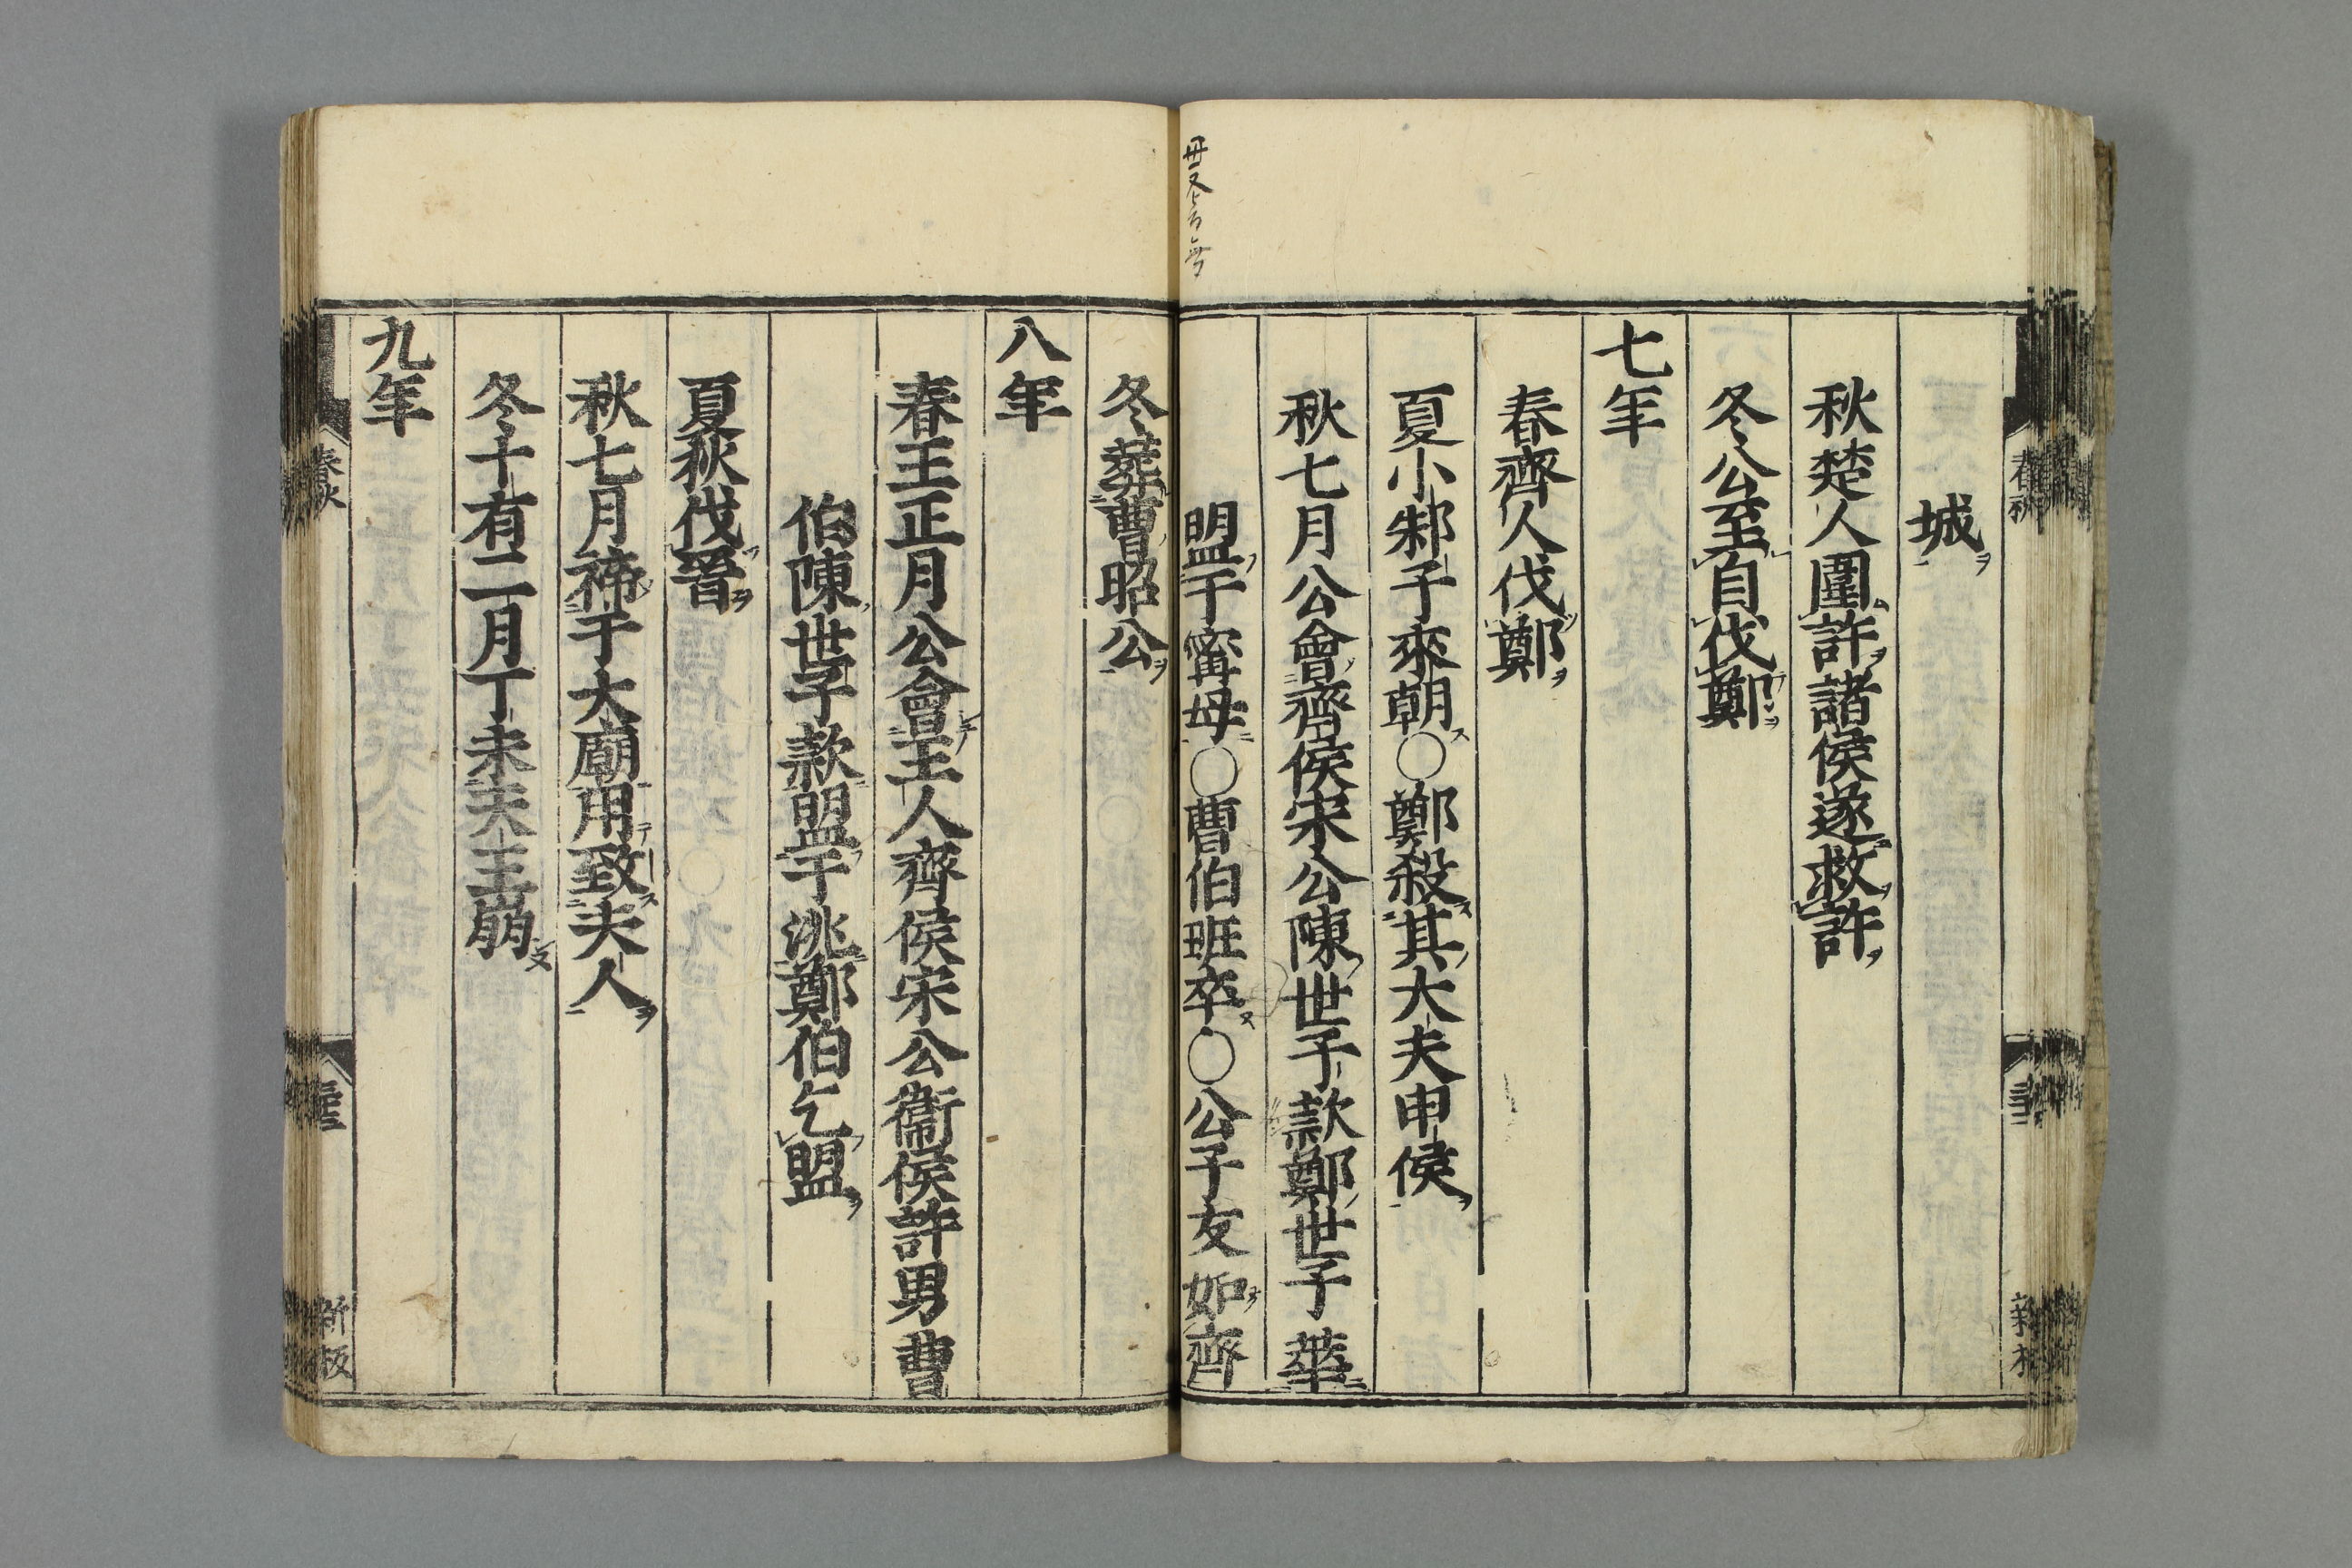 城
秋楚人圍許諸侯遂救許
冬公至自伐鄭
七年
春齊人伐鄭
夏小邾子來朝○鄭殺其大夫申侯
秋七月公會齊侯宋公陳世子款鄭世子華
盟于甯母○曹伯班卒○公子友如齊
冬葬曹昭公
八年
春王正月公會王人齊侯宋公衞侯許男曹
伯陳世子款盟于洮鄭伯乞盟
夏狄伐晉
秋七月禘于大廟用致夫人
冬十有二月丁未天王崩
九年
春秋
新板